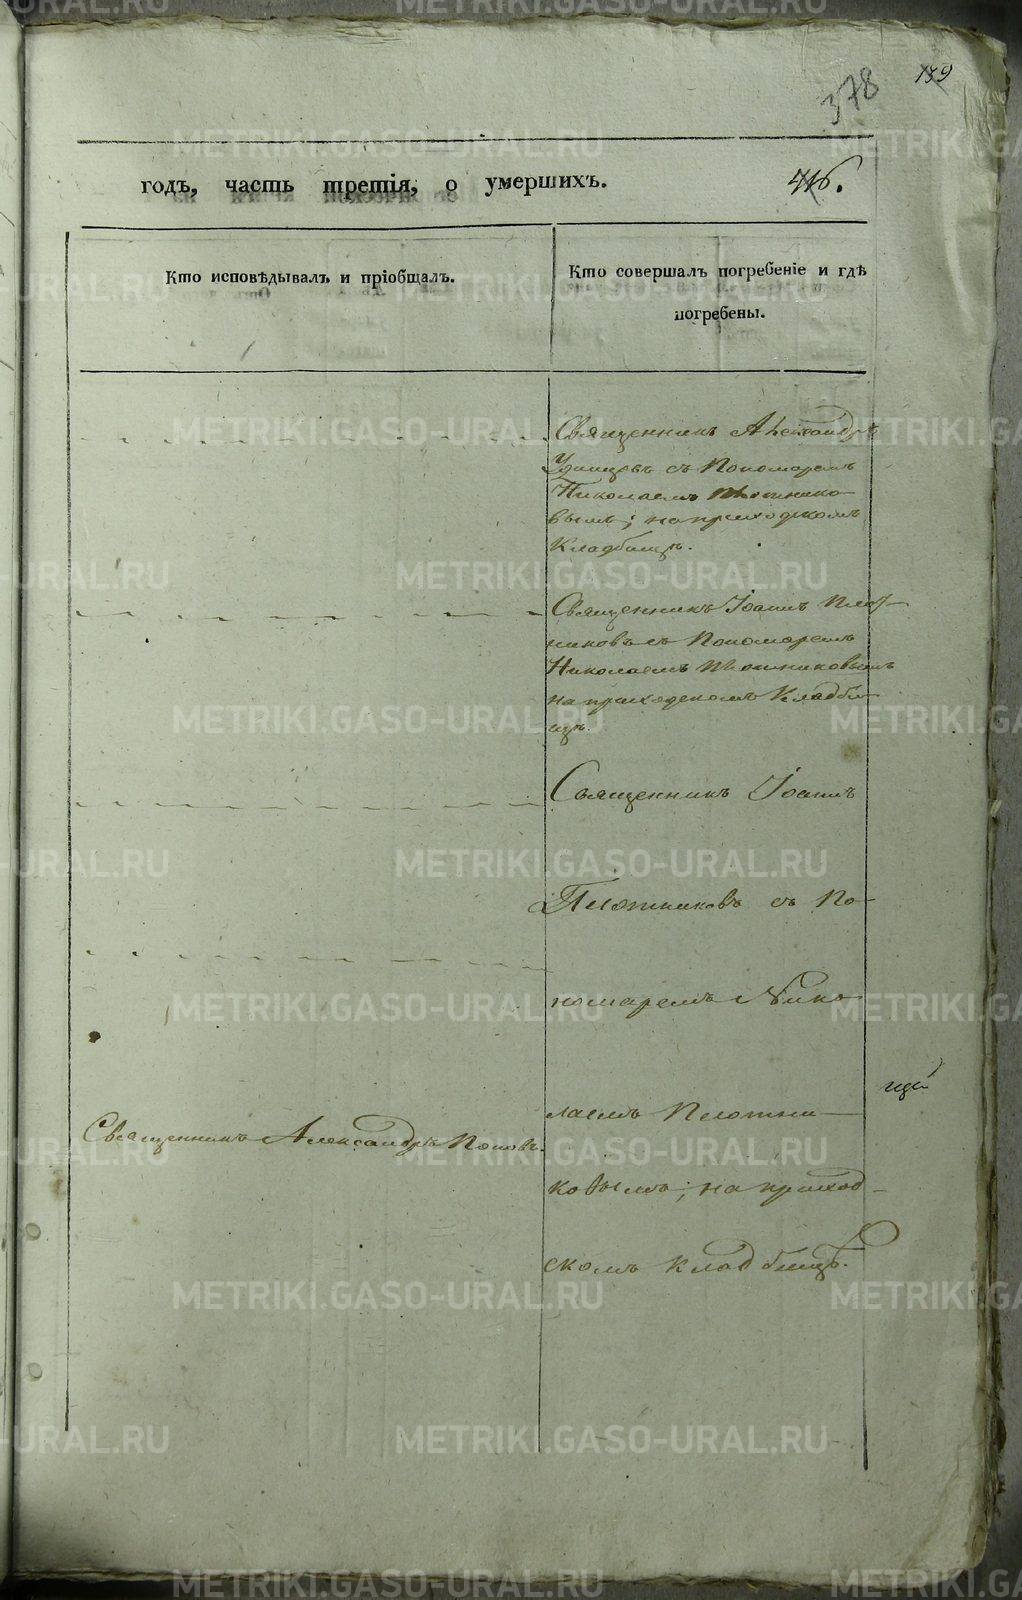 378
139
годъ, часть третія, о умершихъ.
416.
Кто исповѣдывалъ и пріобщалъ.
Кто совершалъ погребеніе и гдѣ
погребены.
Священникъ Александръ
съ Пономаремъ
Николаемъ Плотнико-
вымъ; на приходскомъ
Кладбищѣ.
Священникъ Іоаннъ Плот-
никовъ съ Пономаремъ
Николаемъ Плотниковымъ
на приходскомъ Кладби-
щѣ.
Священникъ Іоаннъ
Плотниковъ съ По-
номаремъ Нико
лаемъ Плотни-
Священникъ Александръ Поповъ.
ковымъ; на приход-
скомъ кладбищѣ.
METRIKI.GASO-URAL.RU